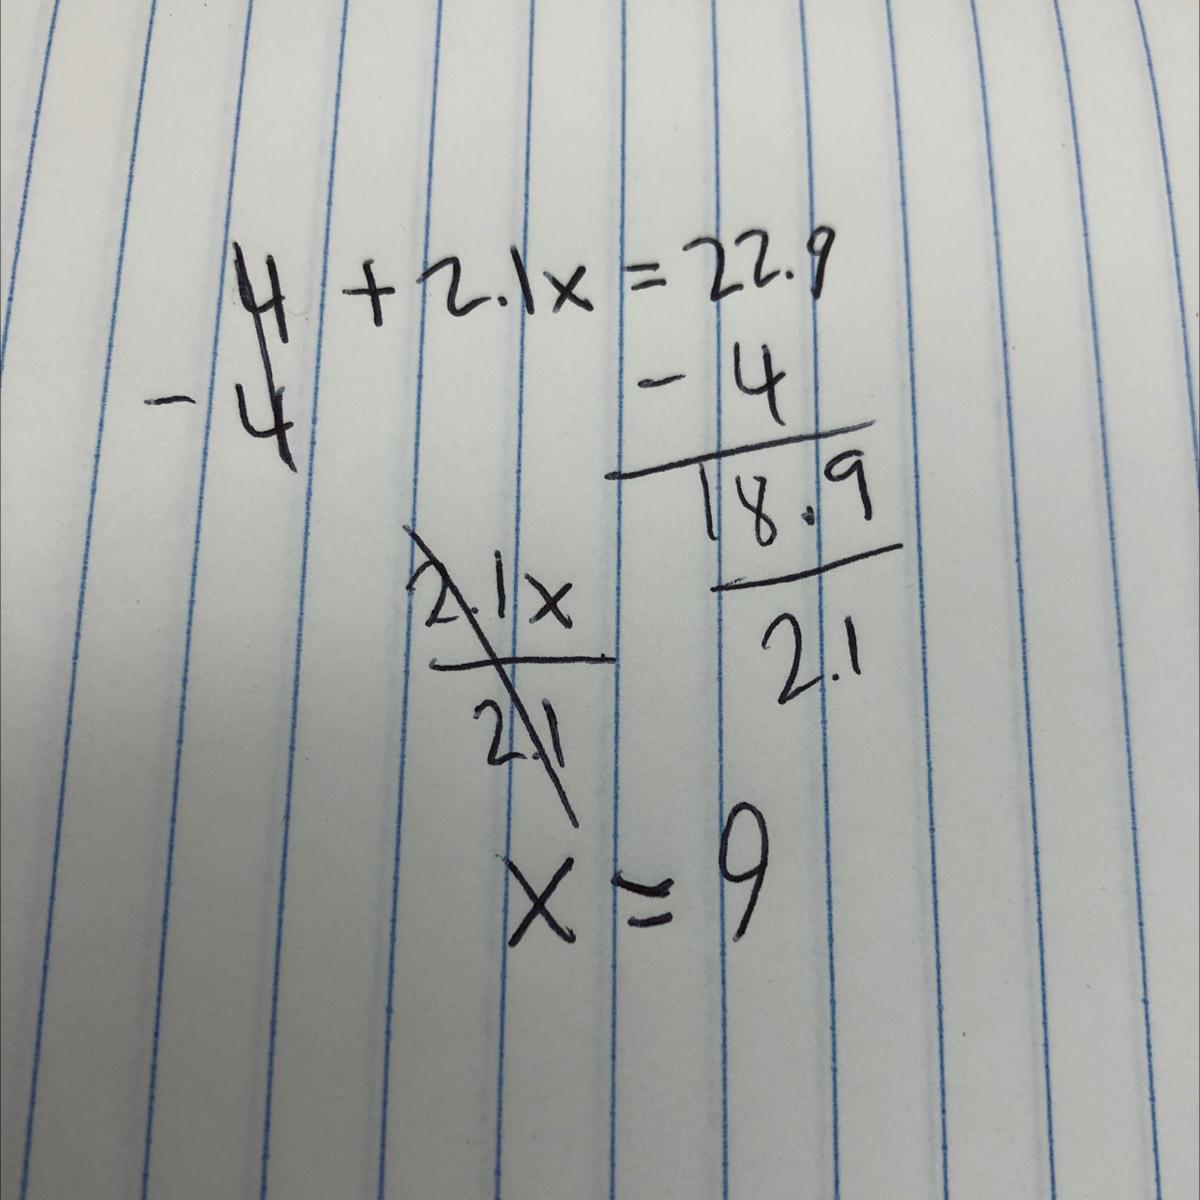 4 + 2.1x = 22.9
- 4 - 4
18.9
2.1x
2.1
2.1
x = 9